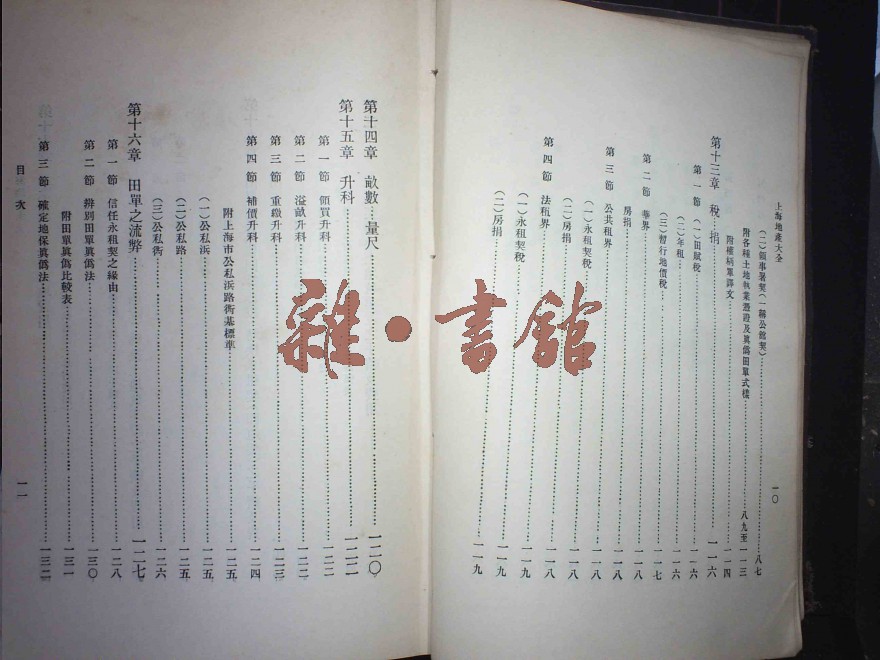 上海地產大全
一〇
(二)領事署契(一稱公館契)……八七
附各種土地執業憑證及眞僞田單式樣……八九至一一三
附權柄單譯文……一一四
第十三章 稅捐……一一六
第一節 (一)田賦稅……一一六
(二)年租……一一六
(三)暫行地價稅……一一七
第二節 華界……一一八
房捐……一一八
第三節 公共租界……一一八
(一)永租契稅……一一八
(二)房捐……一一八
第四節 法租界……一一八
(一)永租契稅……一一九
(二)房捐……一一九
第十四章 畝數…量尺……一二〇
第十五章 升科……一二二
第一節 領買升科……一二二
第二節 溢畝升科……一二二
第三節 重繳升科……一二三
第四節 補價升科……一二四
附上海市公私浜路街基標準……一二五
(一)公私浜……一二五
(二)公私路……一二五
(三)公私街……一二六
第十六章 田單之流弊……一二七
第一節 信任永租契之緣由……一二八
第二節 辨別田單眞僞法……一三〇
附田單眞僞比較表……一三一
第三節 確定地保眞僞法……一三二
目次
一一
雜·書館